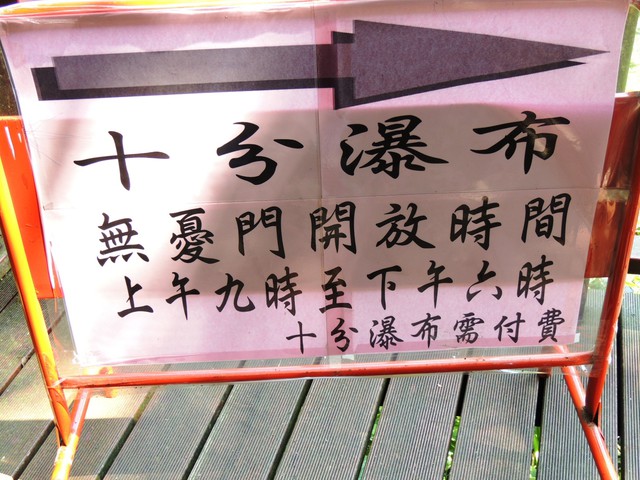 十分瀑布
無憂門開放時間
上午九時至下午六時
十分瀑布需付費